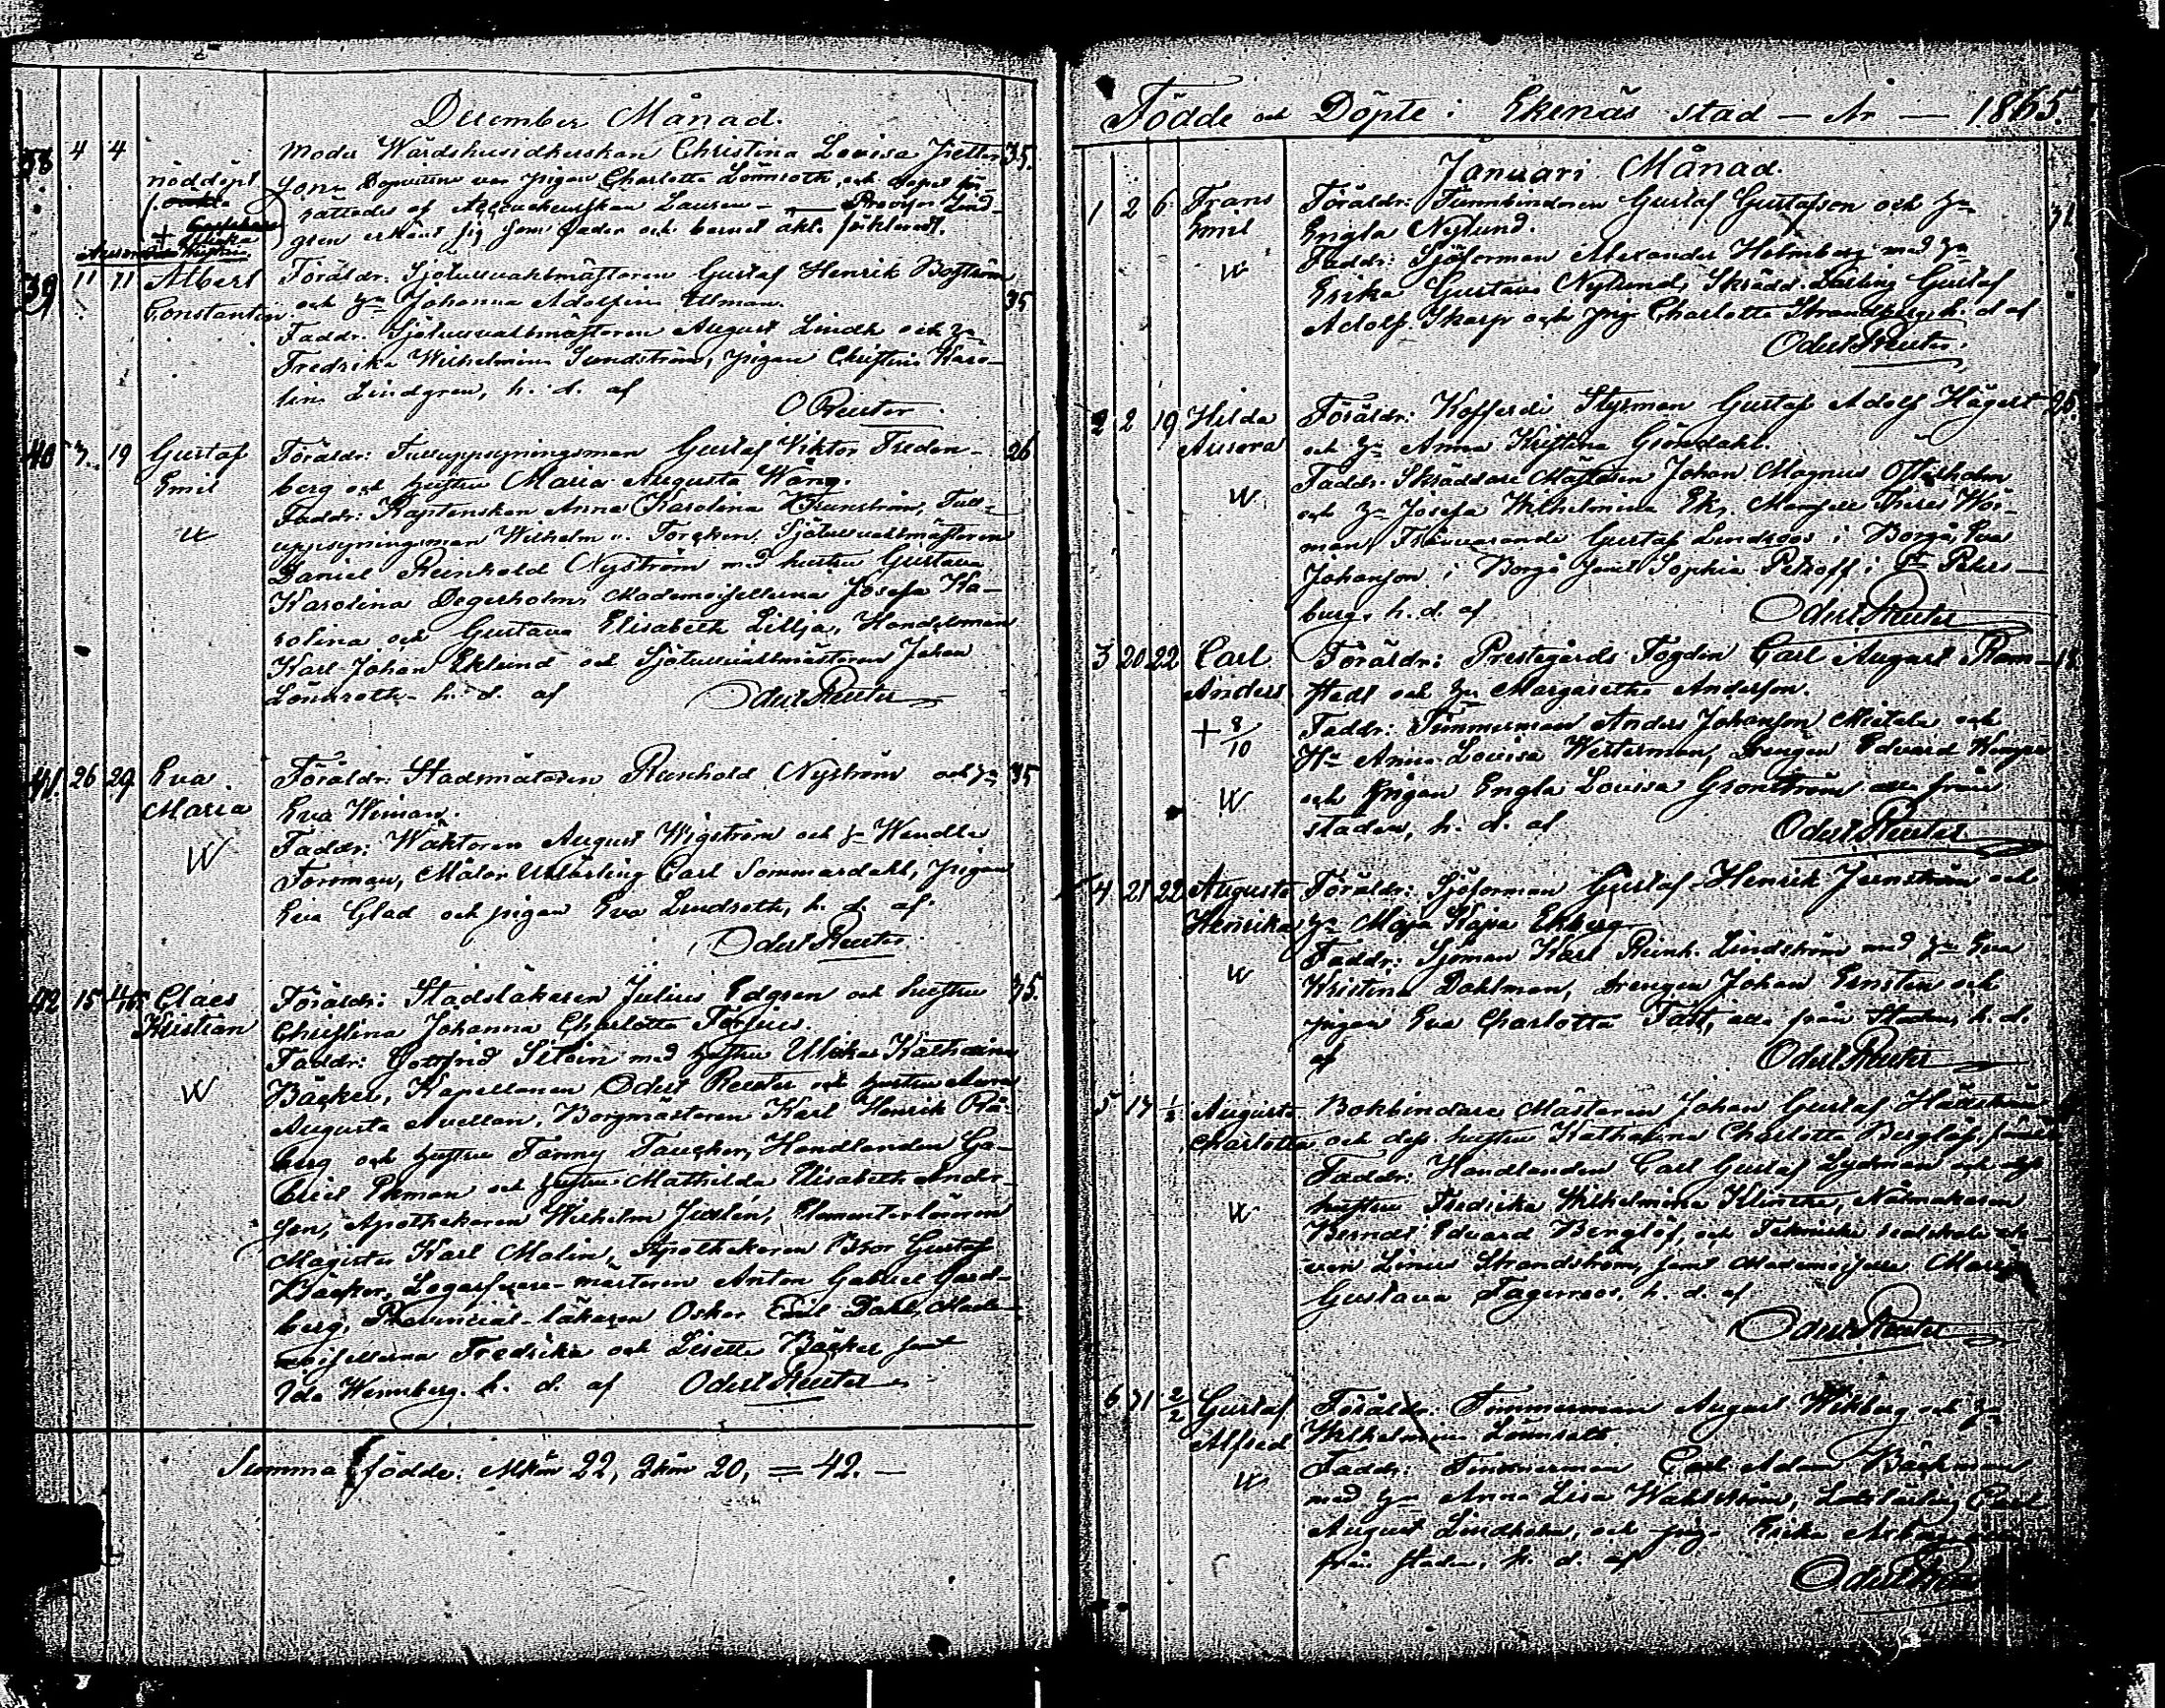 December Månad.
38 4 4 Moder Wärdshusidkerskan Christina Lovisa Petters 35.
nöddöpt son. Dopvittne var pigan Charlotta Lönnroth, och dopet för-
rättades af Accoucheurskan Laurén — Provisor Lind-
gren erkänt sig som fader och barnet äkt. förklarat.
39 11 11 Albert Föräldr. Sjötullvaktmästaren Gustaf Henrik Boström
Constantin och h:u Johanna Adolfina Uman. 35
Faddr. Sjötullvaktmästaren August Lindh och h:u
Fredrika Wilhelmina Sundström, pigan Christina Karo-
lina Lindgren, h. d. af
O Reuter.
40 7 19 Gustaf Föräldr: Tulluppsyningsman Gustaf Viktor Freden- 26
Emil berg och hustru Maria Augusta Wäng.
Faddr: Kaptenskan Anna Karolina Krunström, Tull-
uppsyningsman Wilhelm v. Torcken, Sjötullvaktmästaren
Daniel Reinhold Nyström med hustru Gustava
Karolina Degerholm, Mademoisellerna Josefa Ka-
rolina och Gustava Elisabeth Lillja, Handelsman
Karl Johan Eklund och Sjötullvaktmästaren Johan
Lönnroth. h. d. af Odert Reuter
41. 26 29 Eva Föräldr: Stadsmätaren Reinhold Nyström och h:u 35
Maria Eva Wiman.
W Faddr: Waktaren August Wigström och h:u Wendla
Forsman, Målar Utlärling Carl Sommardahl, pigan
Eva Glad och pigan Eva Lindroth, h. d. af
Odert Reuter.
42 15 Claes Föräldr: Stadsläkaren Julius Edgren och hustru 35.
Kristian Christina Johanna Charlotta Forsius.
Faddr: Gottfrid Sitoin med hustru Ulrika Katharina
W Bäcker, Kapellanen Odert Reuter och hustru Aurora
Augusta Avellan, Borgmästaren Karl Henrik Rå-
berg och hustru Fanny Taucher, Handlanden Ga-
briel Ekman och hustru Mathilda Elisabeth Ander-
son, Apothekaren Wilhelm Juslén, Elementarläraren
Magister Karl Malin, Apothekaren Bror Gustaf
Bäcker, Legarfvare-mästaren Anton Gabriel Gard-
berg, Provincial-läkaren Oskar Emil Dahl, Made-
moisellerna Fredrika och Lisette Bäcker samt
Ida Wennberg. h. d. af Odert Reuter
Summa födde: Mkön 22, Qkön 20, = 42. —
Födde och Döpte i Ekenäs stad — År — 1865.
Januari Månad.
1 2 6 Frans Föräldr: Timmermannen Gustaf Gustafson och h:u 31
Emil Engla Nylund.
W Faddr: Sjöforman Alexander Holmberg med h:u
Erika Gustava Nylund, Skrädd. Lärling Gustaf
Adolf Skarp och pig. Charlotta Strandberg, h. d af
Odert Reuter.
2 2 19 Hilda Föräldr: Kofferdi Styrman Gustaf Adolf Hägert 26.
Aurora och h:u Anna Kristina Gröndahl.
Faddr: Skräddare Mästaren Johan Magnus Österholm
W och h:u Josefa Wilhelmina Ek, Mamsell Theres Wör-
man, Frånvarande Gustaf Lindroos i Borgå, Eva
Johanson i Borgå samt Sophia Petroff i S:t Peters-
burg, h. d. af Odert Reuter
3 20 22 Carl Föräldr: Prestegårds Fogden Carl August Ram- 18.
Anders stedt och h:u Margaretha Anderson.
+ 8/10 Faddr: Timmerman Anders Johanson Mietala och
H:u Anna Lovisa Westerman, Drengen Edvard
W och Pigan Engla Lovisa Grönström alla från
staden, h. d. af Odert Reuter
4 21 22 Augusta Föräldr: Sjöforman Gustaf Henrik Jernström och
Henrika h:u Maja Kajsa Ekberg
Faddr: Sjöman Karl Reinh. Lindström med h:u Eva
W Kristina Dahlman, Drengen Johan Ernstén och
pigan Eva Charlotta Fast, alla från Staden, h. d.
af Odert Reuter
5 17 1/2 Augusta Bokbindare Mästaren Johan Gustaf
Charlotta och dess hustru Katharina Charlotta Berglöf,
Faddr: Handlanden Carl Gustaf Lydman och dess
W hustru Fredrika Wilhelmina Klinthe, Nålmakaren
Berndt Edvard Berglöf, och Tekniska realskole ele-
ven Linus Strandström, samt Mademoiselle Maria
Gustava Fagerroos, h. d. af
Odert Reuter
6 31 2/2 Gustaf Föräldr: Timmerman August Wikberg och h:u
Alfred Wilhelmina Lönnroth.
W Faddr: Timmerman Carl Adam Bäckman
med h:u Anna Lisa Wahlström, Carl
August Lindholm, och pig. Erika
från staden, h. d. af
Odert Reuter